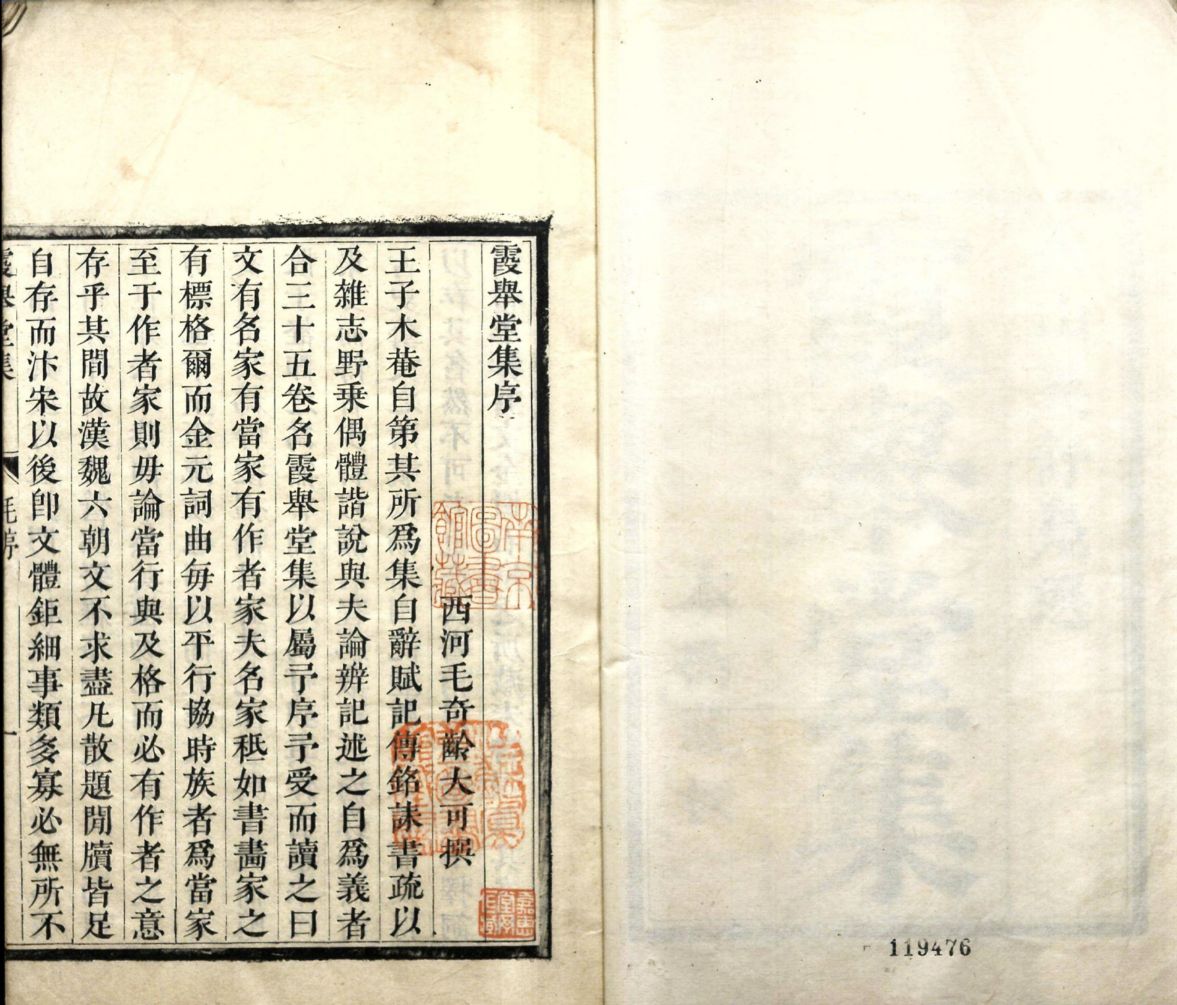 霞舉堂集序
西河毛奇齡大可撰
王子木菴自第其所爲集自辭賦記傳銘誄書疏以
及雜志野乗偶體諧說與夫論辨記述之自爲義者
合三十五卷名霞舉堂集以屬予序予受而讀之曰
文有名家有當家有作者家夫名家秪如書畵家之
有標格爾而金元詞曲每以平行協時族者爲當家
至于作者家則毋論當行與及格而必有作者之意
存乎其間故漢魏六朝文不求盡凡散題閒牘皆足
自存而汴宋以後卽文體鉅細事類多寡必無所不
霞舉堂集
毛序
一
南京圖書館藏
119476